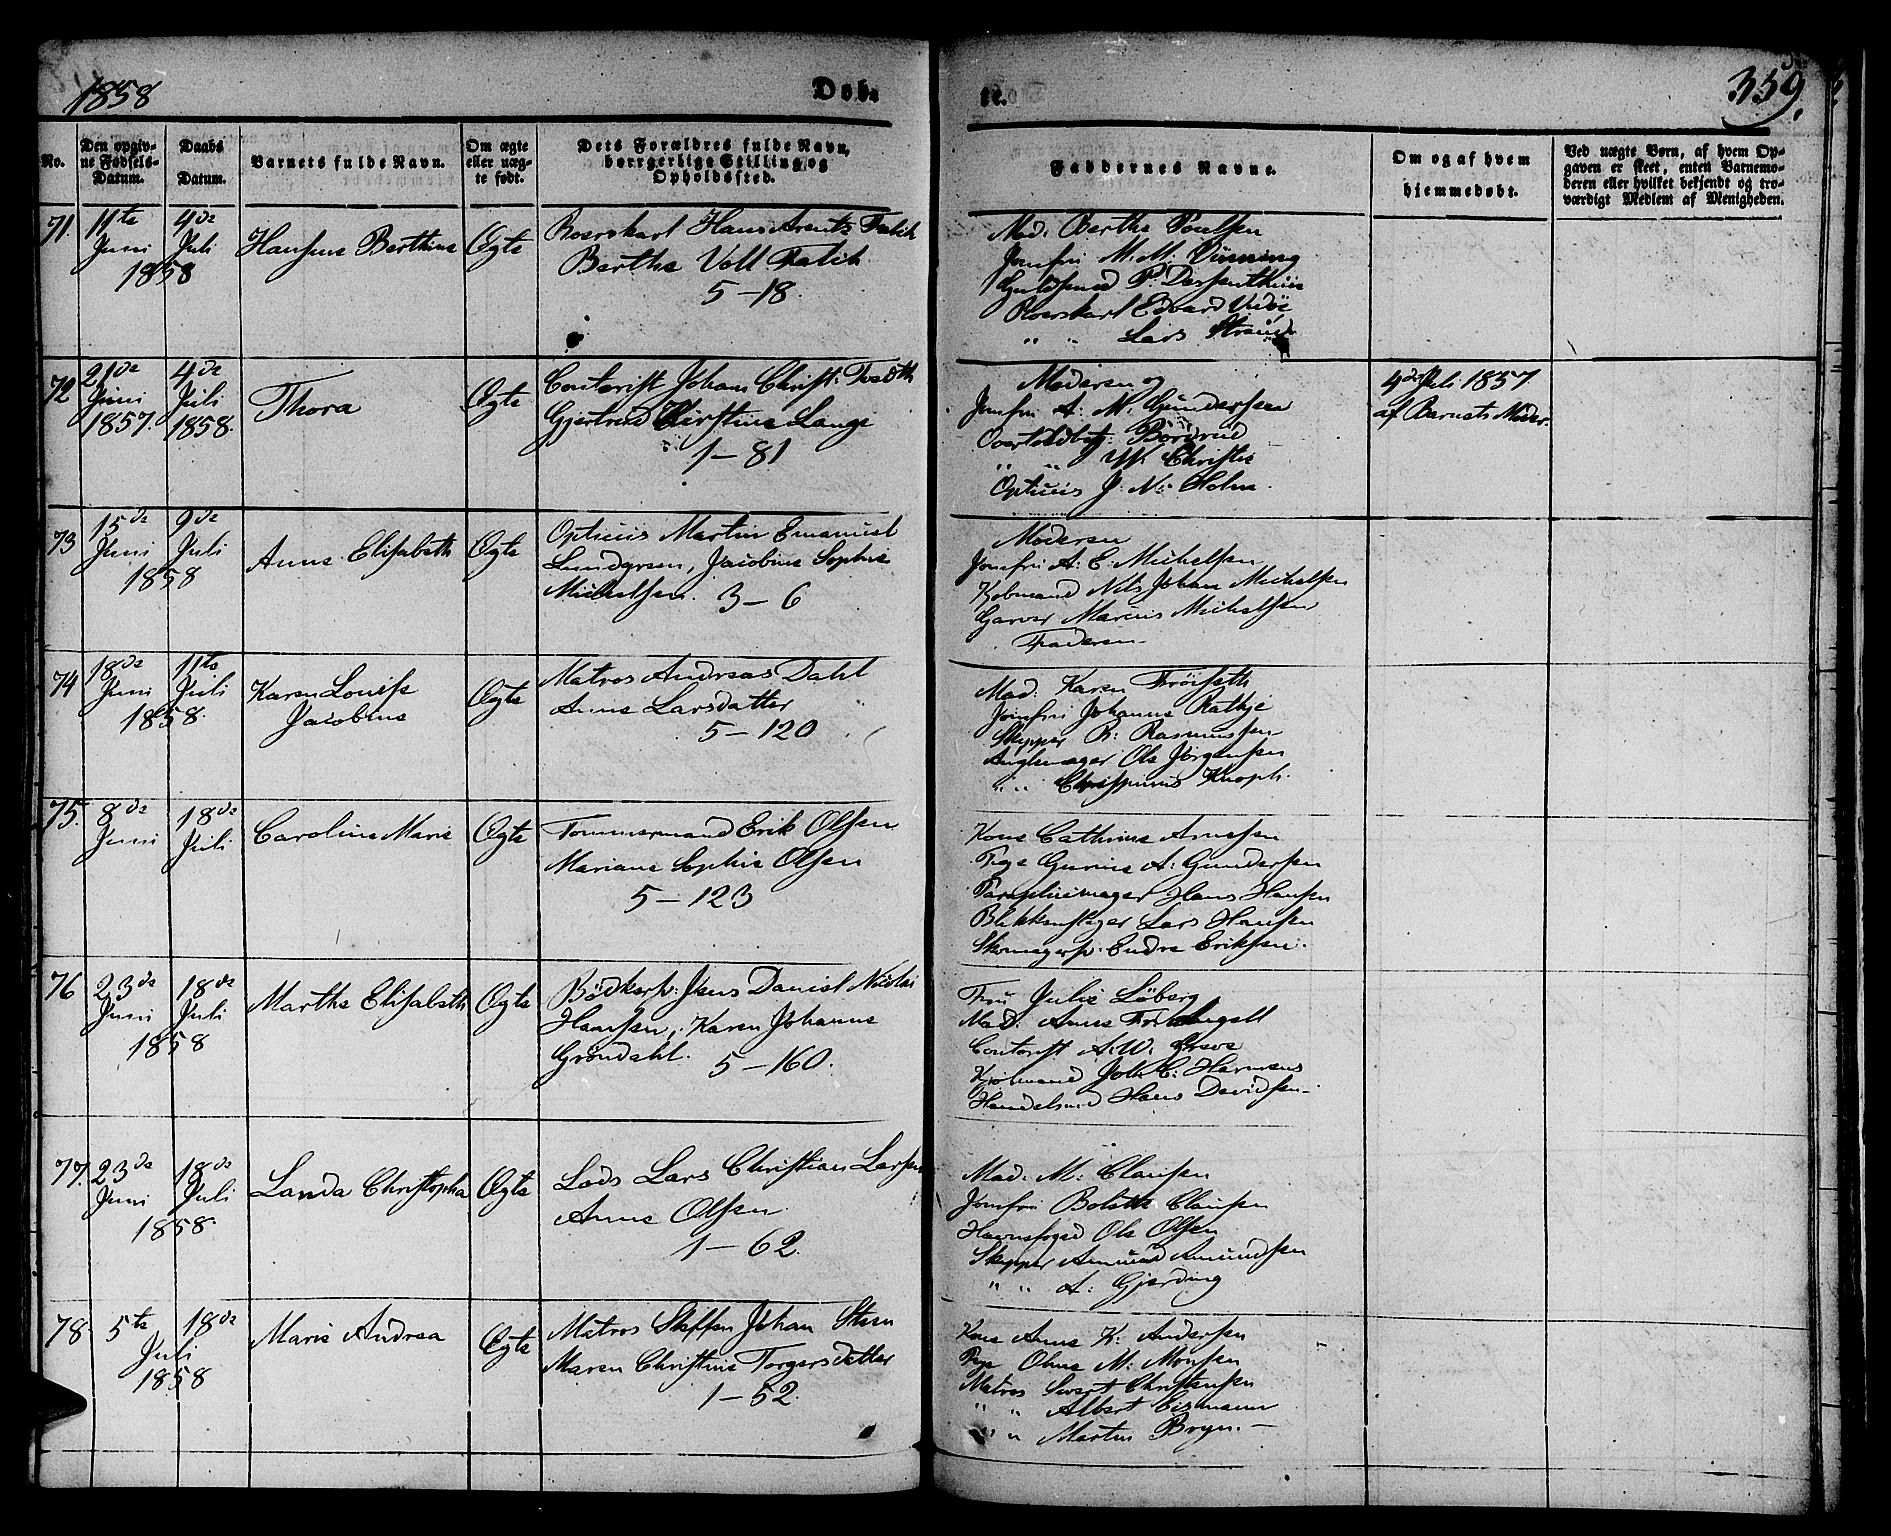 1858
Døb-
te.
359.
No.
Den opgiv-
ne Fødsels-
Datum.
Daabs
Datum.
Barnets fulde Navn.
Om ægte
eller uæg-
te født.
Dets Forældres fulde Navn,
borgerlige Stilling og
Opholdssted.
Faddernes Navne.
Om og af hvem
hjemmedøbt.
Ved uægte Børn, af hvem Op-
gaven er skeet, enten Barnemo-
deren eller hvilket bekjendt og tro-
værdigt Medlem af Menigheden.
71.
11te
Juni
4de
Juli
1858
Hansine Berthine
Ægte
Roerskarl Hans Arentz Falch
Berthe Voll Falch
5-18.
Mad. Berthe Poulsen
Jomfru M. M. Vinning
Roerskarl Edvard Vidøe
" " Lars
72
21de
Juni
1857.
4de
Juli
1858.
Thora
Ægte
Contorist Johan Christ: Tvedth
Gjertrud Kirstine Lange
1-81
Moderen og
Jomfru A. M. Gundersen
" " W. Christie
Opticus J. N. Holm.
4de Juli 1857
af Barnets Moder.
73
15de
Juni
9de
Juli
1858
Anne Elisabeth
Ægte
Opticus Martin Emanuel
Lundgreen, Jacobine Sophie
Michelsen. 3-6
Moderen
Jomfru A. E. Michelsen
Kobmand Nils Johan Michelsen
Garver Marcus Michelsen
Faderen
74
18de
Juni
11te
Juli
1858.
Karen Louise
Jacobine
Ægte
Matros Andreas Dahl
Anne Larsdatter
5-120
Mad. Karen Frøiseth
Jomfru Johanne Ratkje
Skipper R: Rasmussen
Anglemager Ole Jørgensen
" " Chrispinus Knoph.
75.
8de
Juni
18de
Juli
Caroline Marie
Ægte
Tømmermand Erik Olsen
Mariane Sophie Olsen
5-123
Kone Cathrine Arnesen
Pige Gurine A: Gundersen
Paraplüemager Hans Hansen
Blikkenslager Lars Hansen
Skomagersv. Endre Eriksen.
76
23de
Juni
18de
Juli
1858
Marthe Elisabeth
Ægte
Bødkersv: Jens Daniel Nicolai
Hansen, Karen Johanne
Grøndahl. 5-160.
Frü Julie Löberg
Mad. Anne
Contorist A. W. Greve
Kjøbmand Joh. C: Harmens
Handelsmd Hans Davidsen
77.
23de
Juni
18de
Juli
1858.
Landa Christopha
Ægte
Lods Lars Christian Larsen
Anne Olsen
1-62.
Mad. M. Clausen
Jomfru Bolette Clausen
Havnefoged Ole Olsen
Skipper Amund Amundsen
" " A. Gjerding
78.
5te
Juli
18de
1858
Marie Andrea
Ægte
Matros Steffen Johan Steen
Maren Christine Torgersdatter
1-52.
Kone Anne K. Andersen
Pige Oline M. Monsen
Matros Sivert Christensen
" " Albert Eismann
" " Martin Bryn.